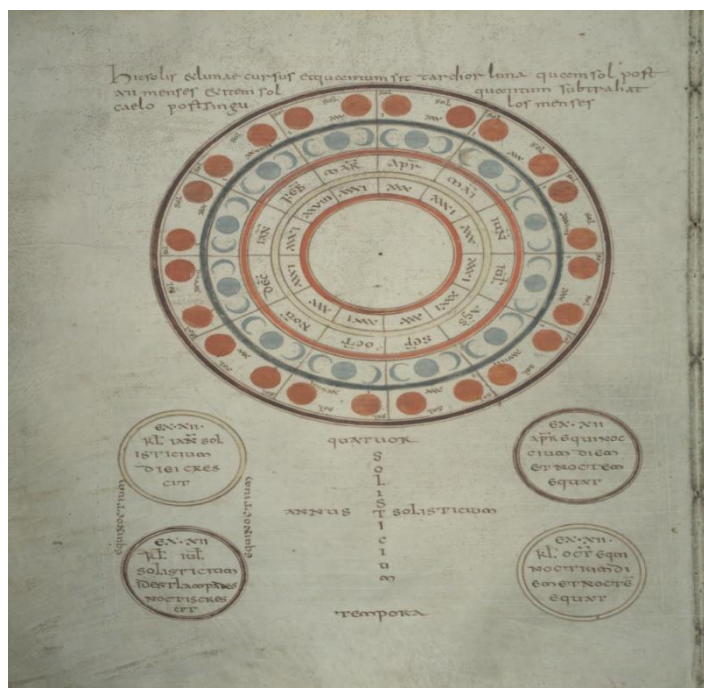 hic solis et lunae cursus et quantum sit tardior luna quam sol post
xii menses et tam sol quantum subtrahat
caelo post singu los menses
sol
luna
MAR̄
APR̄
MAI
IUN̄
IUL̄
AGS̄
SEP̄
OCT̄
NOV̄
DEC̄
IAN̄
FEB̄
XXXI
XXX
XXXI
XXX
XXXI
XXXI
XXX
XXXI
XXX
XXXI
XXXI
XXVIII
EX·XII·
KL̄ IAN̄ SOL
ISTICIUM
DIEI CRES
CIT
EX·XII
APR̄ EQUINOC
CIUM DIEM
ET NOCTEM
EQUAT
QUATUOR
SOLISTICIUM
ANNUS SOLISTICIUM
EQUINOCTIUM
EQUINOCTIUM
EX·XII·
KL̄ IUL̄
SOLISTICIUM
NOCTIS CRES
CIT
EX·XII·
KL̄ OCT̄ EQUI
NOCTIUM DI
EM ET NOCTĒ
EQUAT
TEMPORA